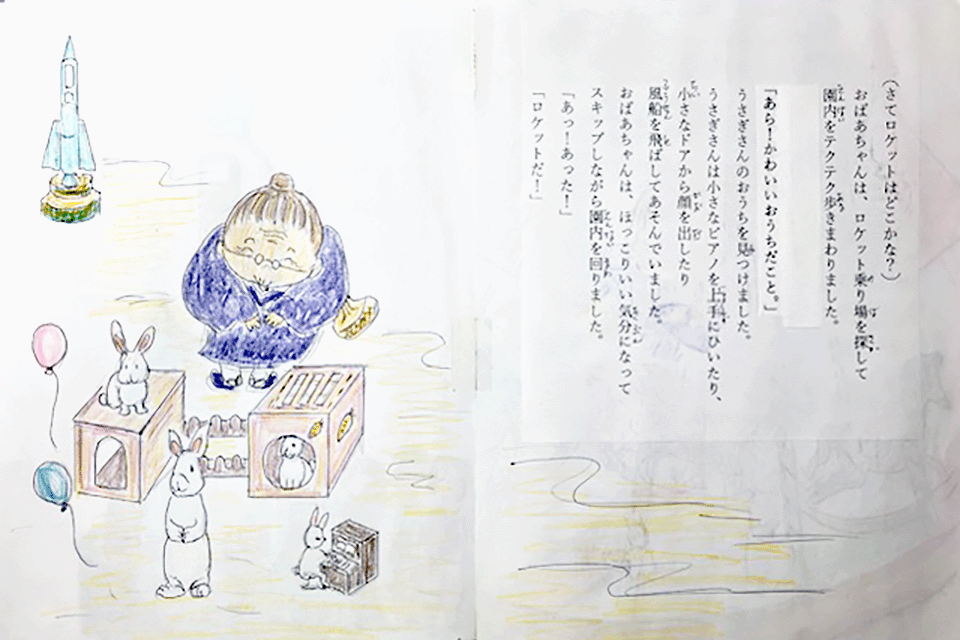 (さてロケットはどこかな?)
おばあちゃんは、ロケット乗り場を探して
園内をテクテク歩きまわりました。
「あら!かわいいおうちだこと。」
うさぎさんのおうちを見つけました。
うさぎさんは小さなピアノを上手にひいたり、
小さなドアから顔を出したり
風船を飛ばしてあそんでいました。
おばあちゃんは、ほっこりいい気分になって
スキップしながら園内を回りました。
「あっ!あった!」
「ロケットだ!」